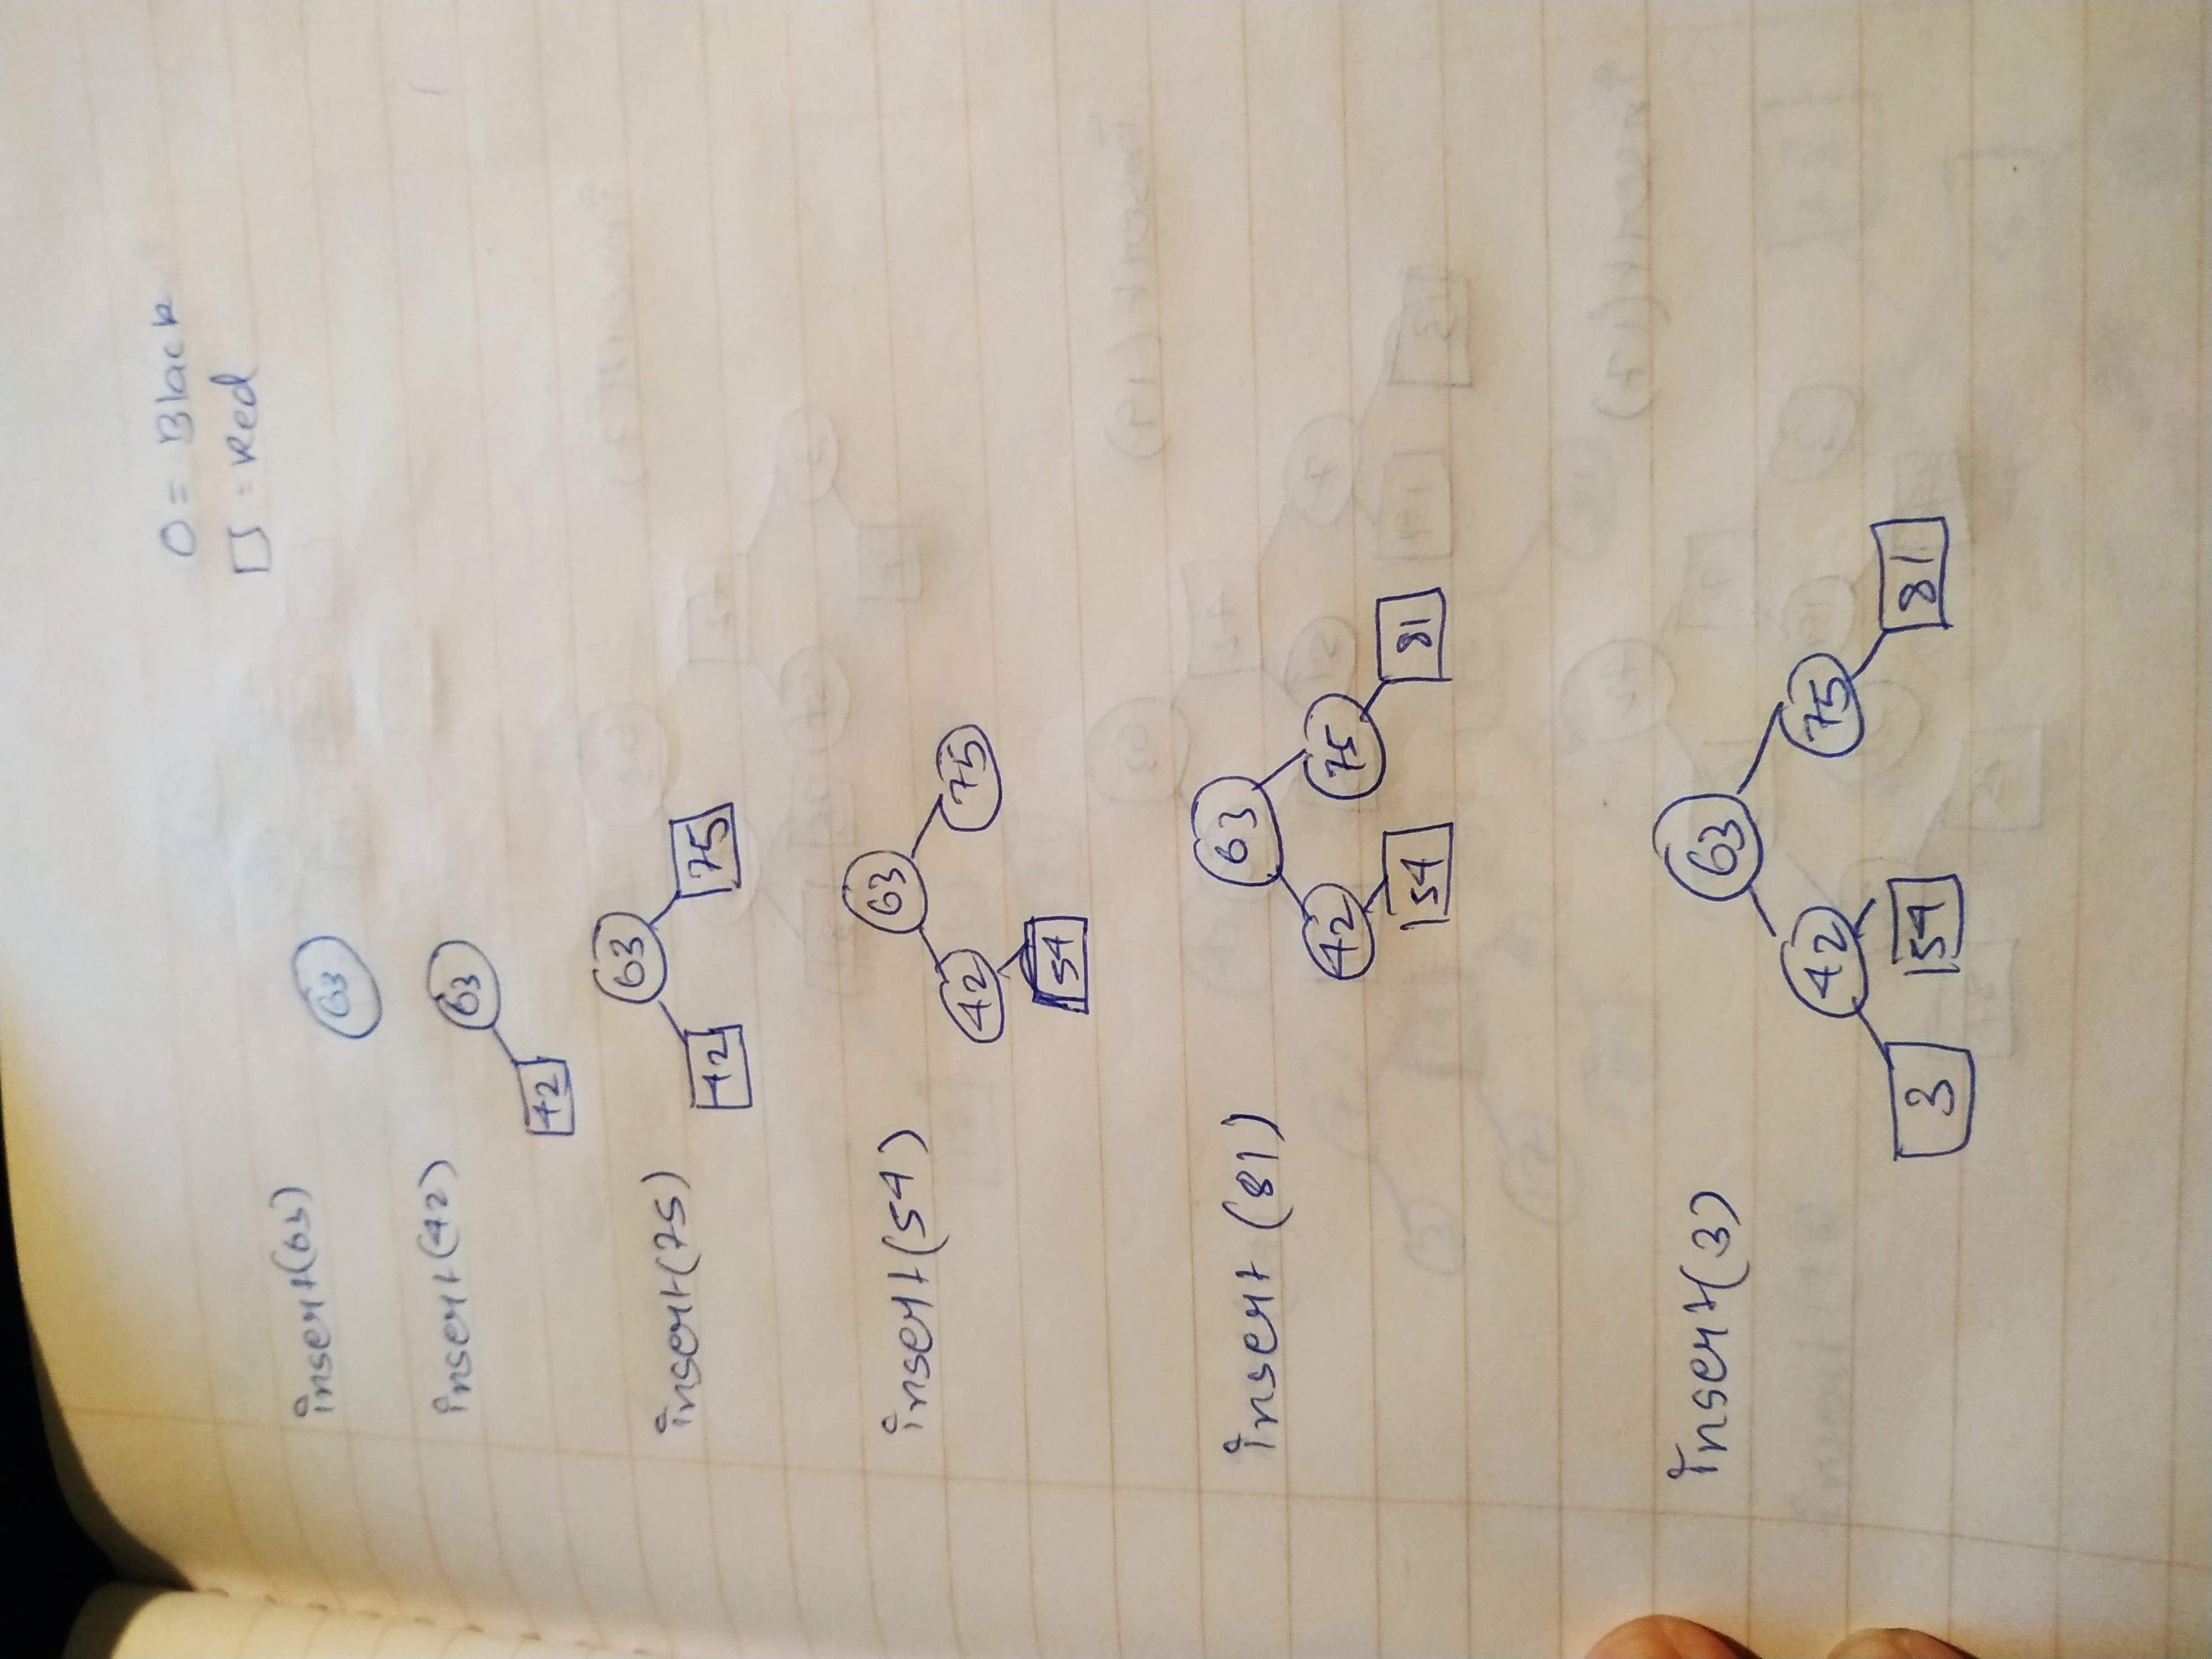 O = Black
□ = Red
insert(63)
63
insert(42)
63
42
63
insert(75)
42 75
63
insert(54)
42 75
54
63
insert (81)
42 75
54 81
insert(3)
63
42 75
3 54 81